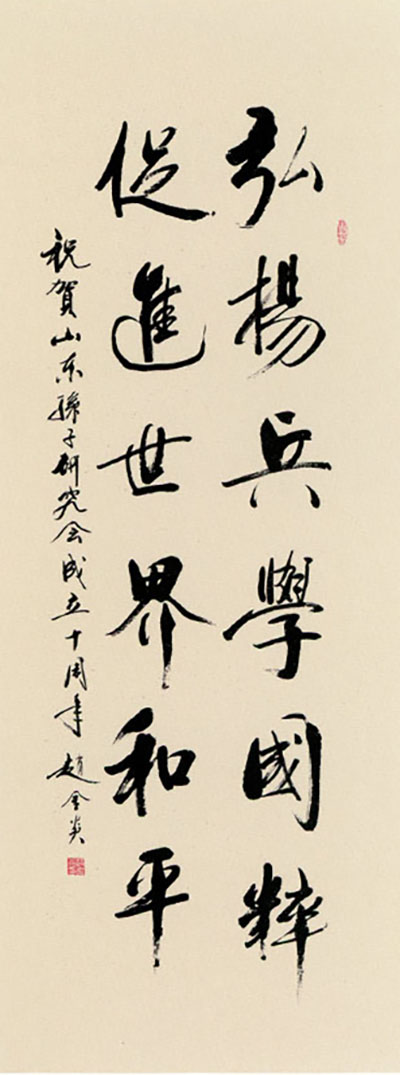 弘楊兵學國粹
促進世界和平
祝賀山东孫子研究会成立十周年 趙金炎